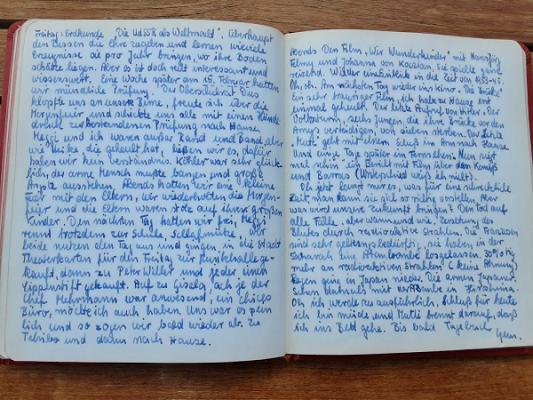 Freitag: Erdkunde "Die UdSSR als Weltmacht", überhaupt
den Russen die Ehre zugeben und lernen wieviel
Erzeugnisse sie pro Jahr bringen, wo ihre Boden-
schätze liegen. Aber es ist doch recht interessant und
wissenswert. Eine Woche später am 15. Februar hatten
wir mündliche Prüfung. Der Oberschulrat Das
klopfte uns an unsere Birne, freute sich über die
Morgenfeier und schickte uns alle mit einem Hände-
druck zur bestandenen Prüfung nach Hause.
und ich waren außer Rand und Band, aber
wie die geheult hat, ließen wir es, dafür
haben wir kein Verständnis. Köhler war sehr glück-
lich, der arme Mensch mußte bangen und große
Ängste ausstehen. Abends hatten wir eine kleine
Feier mit den Eltern, wir wiederholten die Morgen-
feier und die Eltern waren stolz auf ihre großen
Kinder. Den nächsten Tag hatten wir frei,
rennt trotzdem zur Schule, Schlafmütze, wir
beide nutzen den Tag aus und gingen in die Stadt
Theaterkarten für den Freitag zur Musikhalle ge-
kauft, dann zu Peter Willert und jeder einen
Lippenstift gekauft. Auf zu Gisela, ach je der
Chef war anwesend, ein chices
Büro, möchte ich auch haben. Uns war es pein-
lich und so zogen wir bald wieder ab. Zu
Tchibo und dann nach Hause.
Abends den Film "Wir Wunderkinder" mit Hansjörg
Felmy und Johanna von Koczian. Sie spielte ganz
reizend. Wieder ein Einblick in die Zeit von 1933-45.
Oh, oh. Am nächsten Tag wieder ins Kino. "Die Brücke"
Ein sehr trauriger Film, ich habe zu Hause erst
einmal geheult. Der letzte Aufruf von Hitler. Der
Volkssturm, sechs Jungen, die ihre Brücke vor den
Amys verteidigen, von sieben sterben. Der Letzte
geht mit einem Schuß im Arm nach Hause
Und einige Tage später im Fernsehen. Nun
mal schon ein Bericht mit Film über den Kampf
und Barras (Untergang weiß ich nicht).
Oh jetzt kommt mir es, was für eine schreckliche
Zeit, man kann sie sich so richtig vorstellen. Aber
was wird unsere Zukunft bringen? Den Tod auf
alle Fälle, aber wann und wie, Zersetzung des
Blutes durch radioaktive Strahlen. Die Franzosen
sind sehr geltungsbedürftig, sie haben in der
Sahara eine Atombombe losgelassen 30%tig
mehr an radioaktiven Strahlen! (keine Ahnung)
Regen ging in Japan nieder. Die armen Japaner
litten damals mit der Bombe in Hiroshima.
Oh ich werde zu ausführlich. Schluß für heute
ich bin müde und Mutti brennt darauf, daß
ich ins Bett gehe. Bis bald Tagebuch